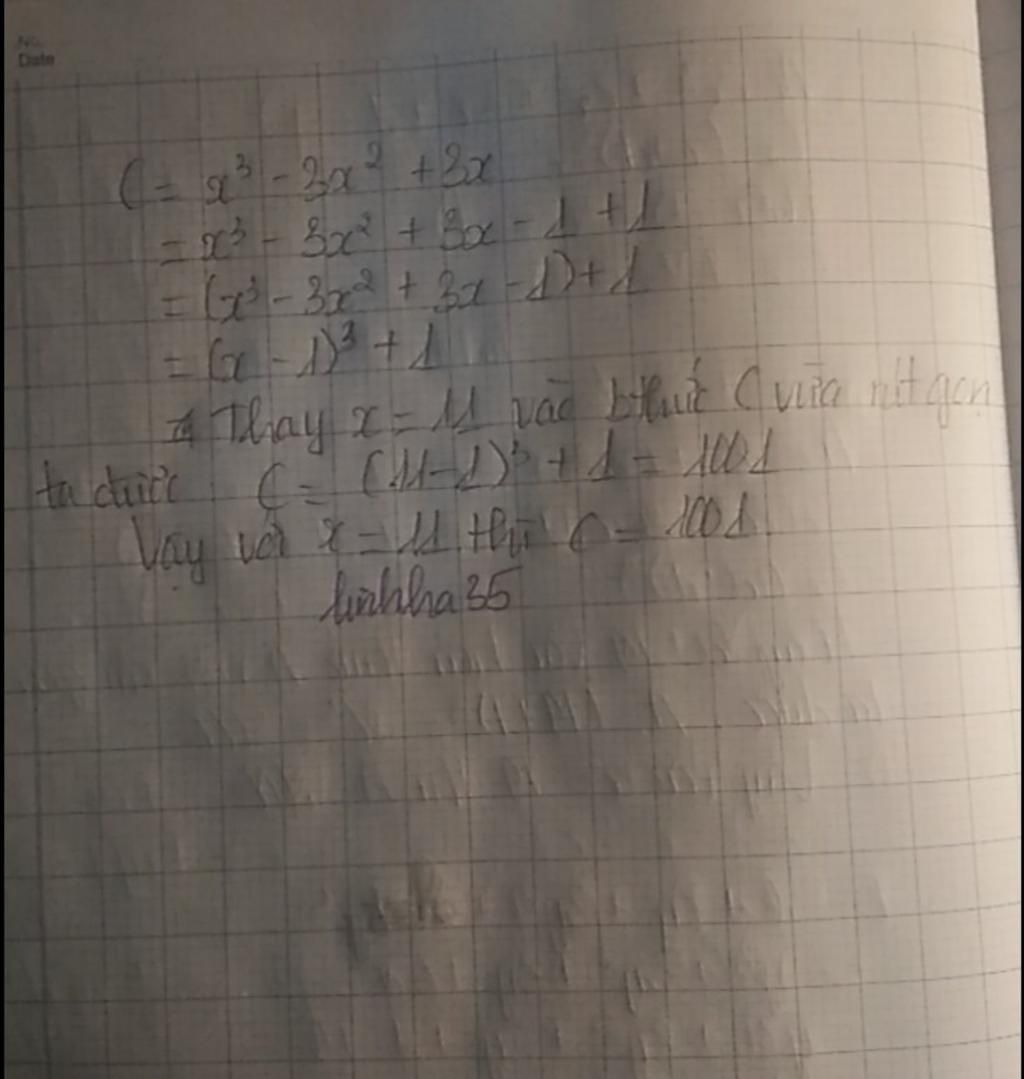 No.
Date
C = x³ - 3x² + 3x
= x³ - 3x² + 3x - 1 + 1
= (x³ - 3x² + 3x - 1) + 1
= (x - 1)³ + 1
Thay x = 11 vào bthức C vừa rút gọn
ta được C = (11-1)³ + 1 = 1001
Vậy với x = 11 thì C = 1001
linhha35